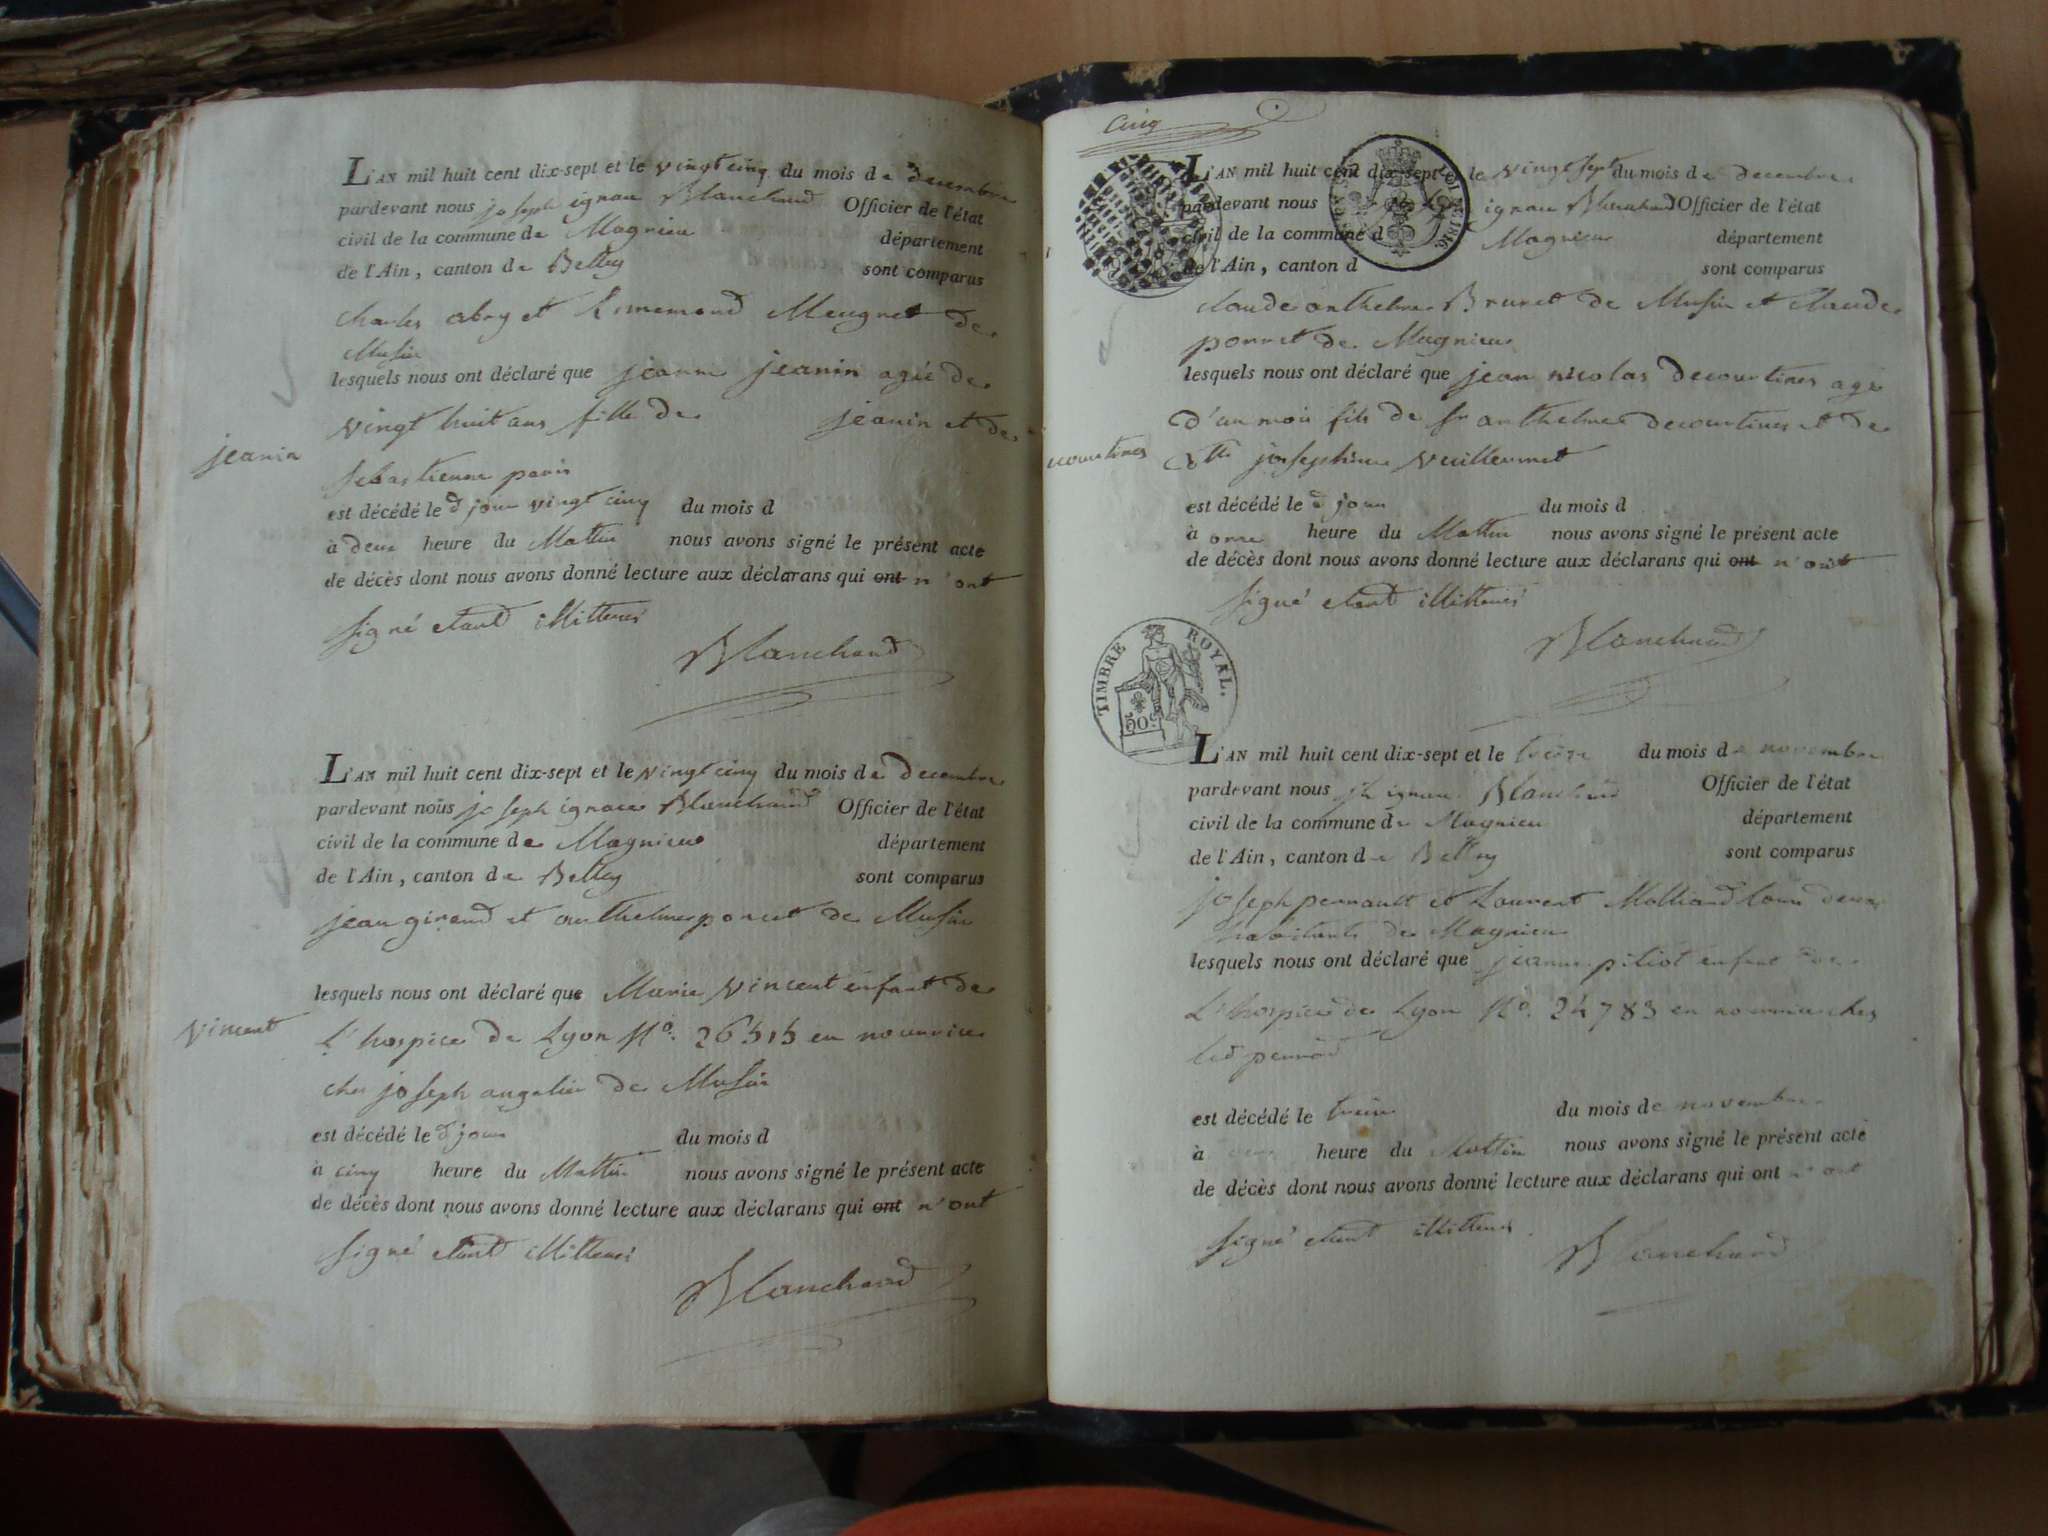 L'AN mil huit cent dix-sept et le vingt cinq du mois de decembre
pardevant nous joseph ignace Blanchard Officier de l'état
civil de la commune de Magnieu département
de l'Ain, canton de Belley sont comparus
charles abry et Meugnet de
Musin
lesquels nous ont déclaré que jeanne jeanin agée de
vingt huit ans fille de jeanin et de
jeanin
sebastienne
est décédé le d jour vingt cinq du mois d
à deux heure du Mattin nous avons signé le présent acte
de décès dont nous avons donné lecture aux déclarans qui ont n'ont
signé etant illitterés
Blanchard
L'AN mil huit cent dix-sept et le vingt cinq du mois de decembre
pardevant nous joseph ignace Blanchard Officier de l'état
civil de la commune de Magnieu département
de l'Ain, canton de Belley sont comparus
jean giraud et anthelme porret de Musin
lesquels nous ont déclaré que Marie vincent enfant de
vincent
L'hospice de Lyon No. 26515 en nourrice
ches joseph angelin de Musin
est décédé le d jour du mois d
à cinq heure du Mattin nous avons signé le présent acte
de décès dont nous avons donné lecture aux déclarans qui ont n'ont
signé etant illitterés
Blanchard
Cinq
L'AN mil huit cent dix-sept et le vingt sept du mois de decembre
pardevant nous ignace Blanchard Officier de l'état
civil de la commune d Magnieu département
de l'Ain, canton d sont comparus
claude anthelme Brunet de Musin et Claude
porret de Magnieu
lesquels nous ont déclaré que jean nicolas decourtines agé
d'un mois fils de sr anthelme decourtines et de
decourtines
josephine Vuillermet
est décédé le d jour du mois d
à onze heure du Mattin nous avons signé le présent acte
de décès dont nous avons donné lecture aux déclarans qui ont n'ont
signé etant illitterés
Blanchard
TIMBRE ROYAL.
50 c
L'AN mil huit cent dix-sept et le treize du mois de novembre
pardevant nous jh ignace Blanchard Officier de l'état
civil de la commune de Magnieu département
de l'Ain, canton de Belley sont comparus
joseph pernault et Laurent Molliand tous deux
habitants de Magnieu
lesquels nous ont déclaré que jeanne pitiot enfant de
L'hospice de Lyon No. 24783 en nourrice ches
led
est décédé le treize du mois de novembre
à heure du Mattin nous avons signé le présent acte
de décès dont nous avons donné lecture aux déclarans qui ont n'ont
signé etant illitterés
Blanchard